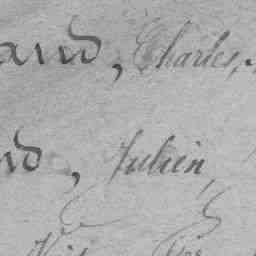 and, Charles,
nd, Julien,